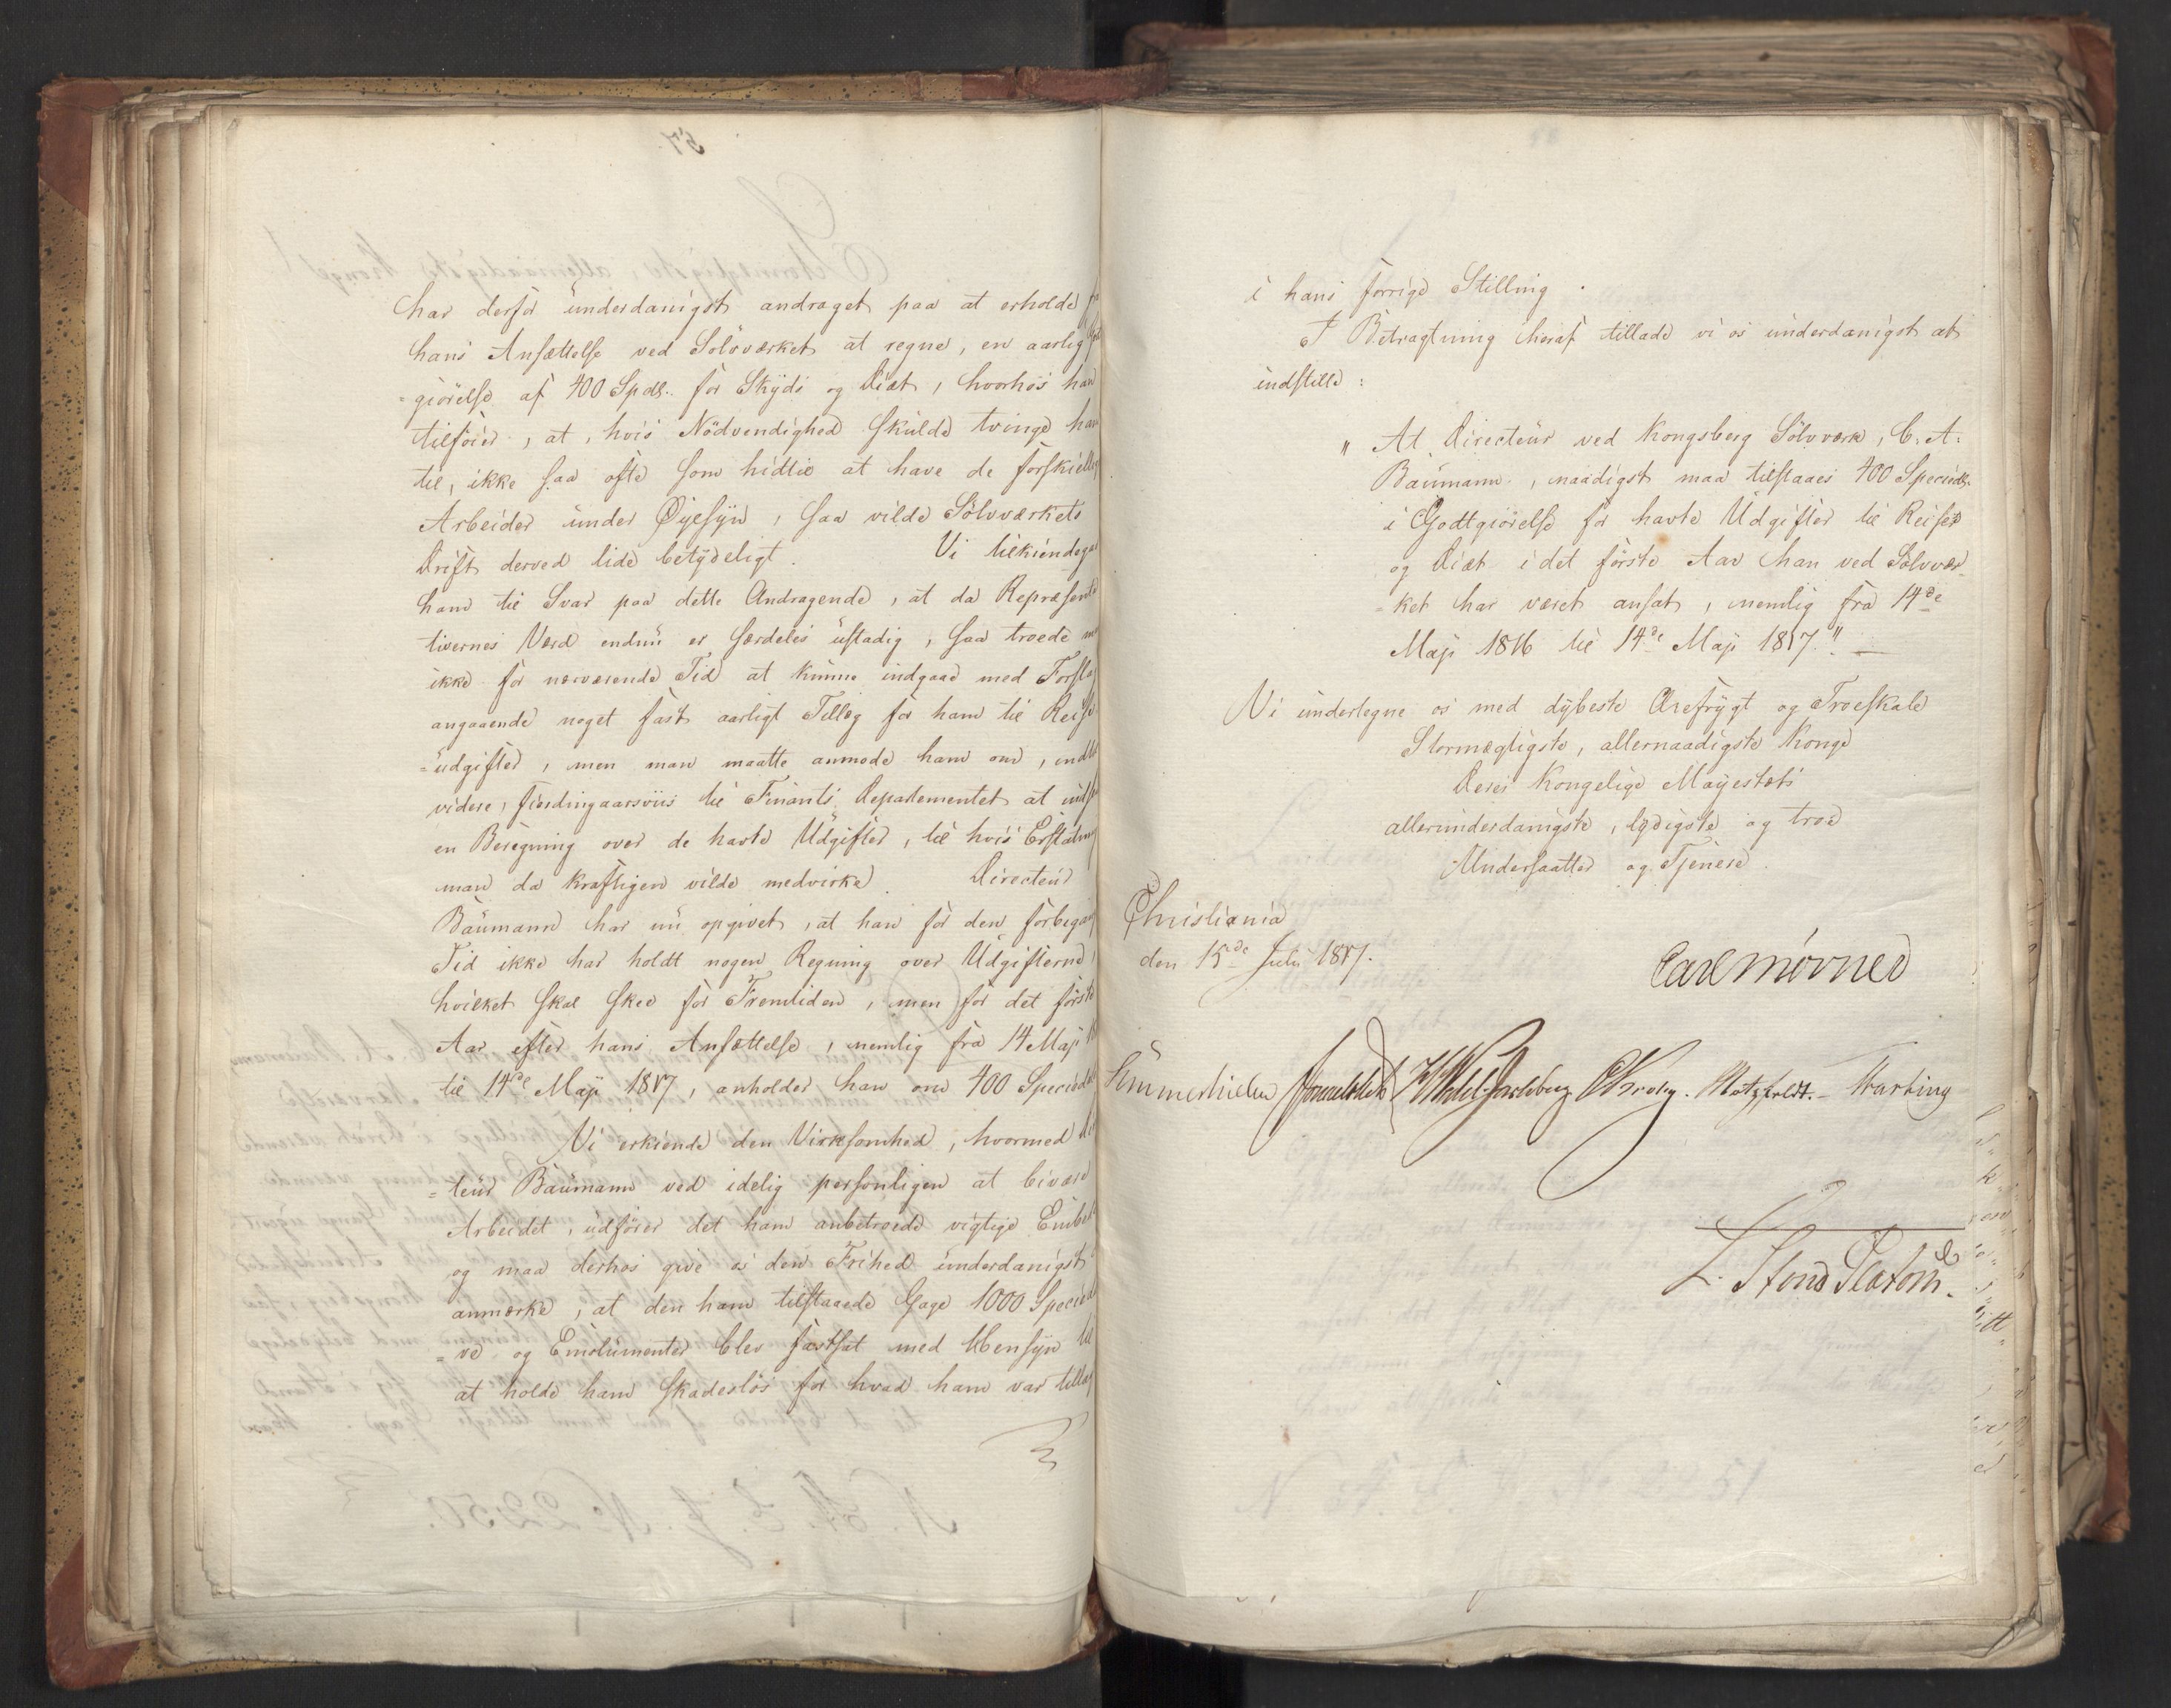 har derfor underdanigst andraget paa at erholde fra
hans Ansættelse ved Sølvværket at regne, en aarlig
=giørelse af 400 Spdlr. for Skyds og Diæt, hvorhos han
tilføier, at, hvis Nödvendighed skulde tvinge ham
til, ikke saa ofte som hidtil at have de forskiellige
Arbeider under Øyesyn, saa vilde Sölvværkets
Drift derved lide betydeligt. Vi tilkiendegav
ham til Svar paa dette Andragende, at da Repræsenta
tivernes Værd endnu er særdeles ustadig, saa troede man
ikke for nærværende Tid at kunne indgaae med Forslag
angaaende noget fast aarligt Tillæg for ham til Reise
=udgifter, men man maatte anmode ham om, indtil
videre, fierdingaarsviis til Finants Departementet at indsende
en Beregning over de havte Udgifter, til hvis Erstatning
man da kraftigen vilde medvirke. Directeur
Baumann har nu opgivet, at han for den forbegangne
Tid ikke har holdt nogen Regning over Udgifterne,
hvilket skal skee for Fremtiden, men for det første
Aar efter hans Ansættelse, nemlig fra 14 Maji
til 14de Maji 1817, anholder han om 400 Speciedaler
Vi erkiende den Virksomhed, hvormed
=teur Baumann ved idelig personligen at bivære
Arbeidet, udfører det ham anbetroede vigtige Embede
og maa derhos give os den Frihed underdanigst
anmærke, at den ham tilstaaede Gage 1000 Specied
=ve og Emolumenter blev fastsat med Hensyn til
at holde ham skadesløs for hvad ham var tillagt
i hans forrige Stilling.
I Betragtning heraf tillade vi os underdanigst at
indstille:
"At Directeur ved Kongsberg Sölvværk, C. A.
Baumann, naadigst maa tilstaaes 400 Speciedlr.
i Godtgiørelse for havte Udgifter til Reiser
og Diæt i det første Aar han ved Sølvvær
=ket har været ansat, nemlig fra 14de
Maji 1816 til 14de Maji 1817."
Vi undertegne os med dybeste Ærefrygt og Troeskab
Stormægtigste, allernaadigste Konge
Deres Kongelige Mayestæts
allerunderdanigste, lydigste og troe
Undersaatter og Tjenere.
Christiania
den 15de Juli 1817.
Carl Mörner
Sommerhielm Wedel Jarlsberg CKrohg. Motzfeldt. Thaxting
L. Stoud Platou.